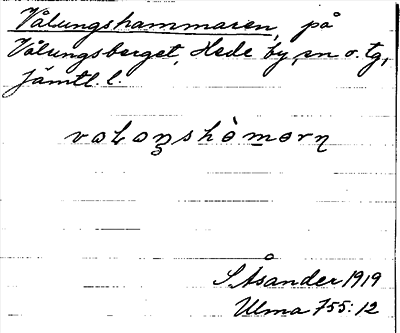 Vålungshammaren, på
Vålungsberget, Hede by, sn o. tg,
Jämtl. l.
vaLaŋshòmɐrn
S Åsander 1919
Ulma 755:12